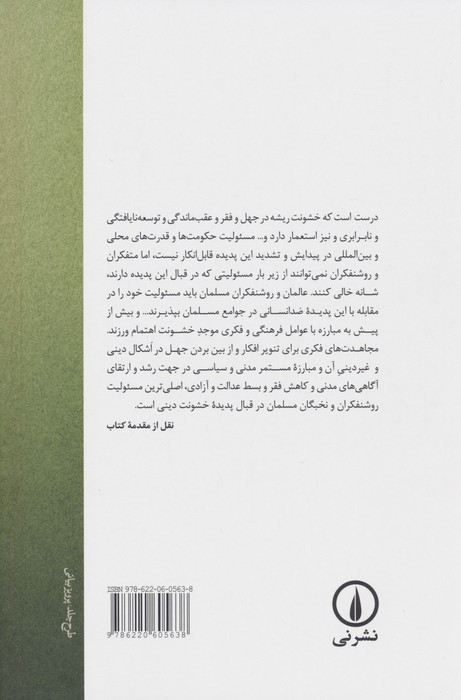 درست است که خشونت ریشه در جهل و فقر و عقب‌ماندگی و توسعه‌نایافتگی
و نابرابری و نیز استعمار دارد و... مسئولیت حکومت‌ها و قدرت‌های محلی
و بین‌المللی در پیدایش و تشدید این پدیده قابل‌انکار نیست، اما متفکران
و روشنفکران نمی‌توانند از زیر بار مسئولیتی که در قبال این پدیده دارند،
شانه خالی کنند. عالمان و روشنفکران مسلمان باید مسئولیت خود را در
مقابله با این پدیدهٔ ضدانسانی در جوامع مسلمان بپذیرند... و بیش از
پیش به مبارزه با عوامل فرهنگی و فکری موجدِ خشونت اهتمام ورزند.
مجاهدت‌های فکری برای تنویر افکار و از بین بردن جهل در اَشکال دینی
و غیردینیِ آن و مبارزهٔ مستمر مدنی و سیاسی در جهت رشد و ارتقای
آگاهی‌های مدنی و کاهش فقر و بسط عدالت و آزادی، اصلی‌ترین مسئولیت
روشنفکران و نخبگان مسلمان در قبال پدیدهٔ خشونت دینی است.
نقل از مقدمهٔ کتاب
طرح جلد: پرویز بیانی
ISBN 978-622-06-0563-8
9786220605638
نشرنی